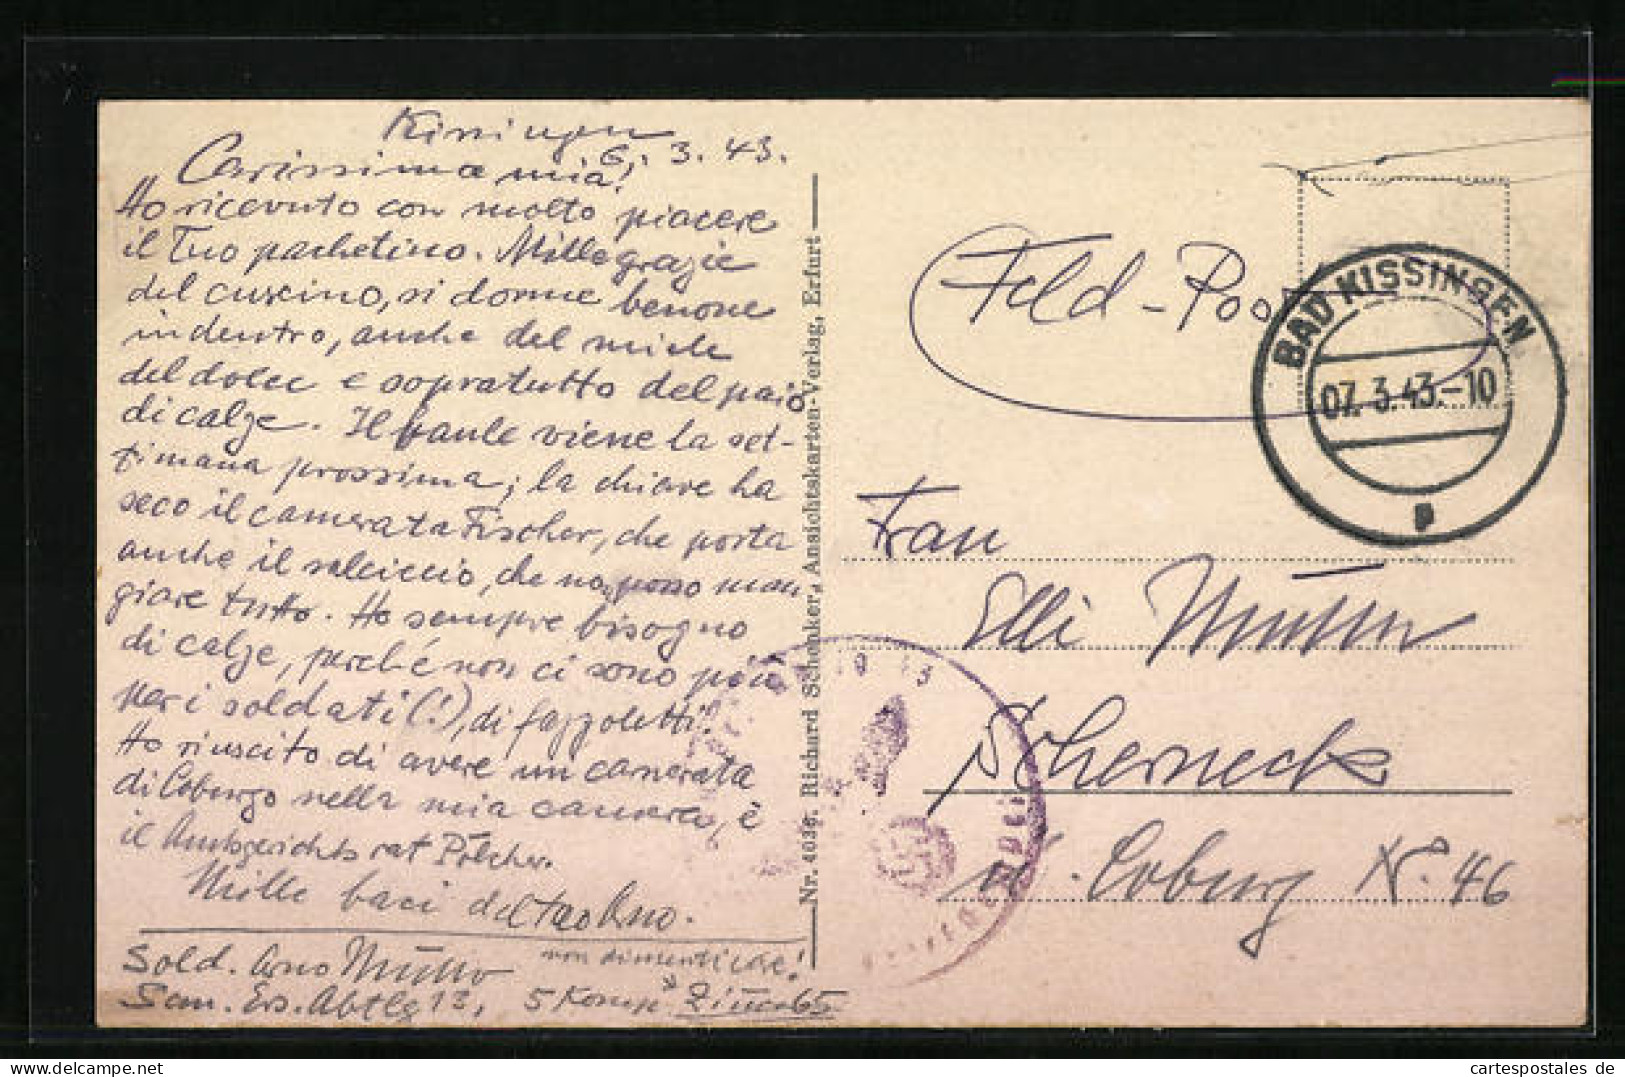 Kissingen
6. 3. 43.
Carissima mia!
Ho ricevuto con molto piacere
il Tuo pachetino. Mille grazie
del cuscino, si dorme benone
in dentro, anche del miele
del dolce e sopratutto del paio
di calze. Il baule viene la set-
timana prossima; la chiave ha
seco il camerata Fischer, che porta
anche il salciccio, che no posso man
giare tutto. Ho sempre bisogno
di calze, perché non ci sono più
per i soldati (!), di fazzoletti!
Ho riuscito di avere un camerata
di Coburgo nella mia camera, è
il Amtsgerichtsrat Pilcher.
Mille baci del tao Arno.
Sold. Arno Müller non dimenticare!
San. Ers. Abtlg 13, 5 Komp. Zimmer 65
Nr. 4036. Richard Schenker, Ansichtskarten-Verlag, Erfurt
Feld-Post
BAD KISSINGEN
07. 3. 43.-10
Frau
Elli Müller
Scherneck
b. Coburg No. 46
www.cartespostales.de